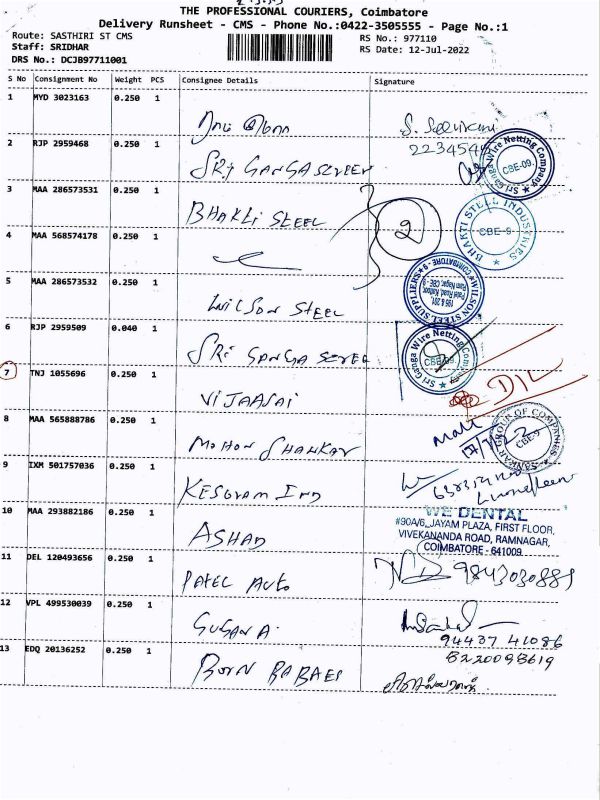 THE PROFESSIONAL COURIERS, Coimbatore
Delivery Runsheet - CMS - Phone No.:0422-3505555 - Page No.:1
Route: SASTHIRI ST CMS
Staff: SRIDHAR
DRS No.: DCJB97711001
RS No.: 977110
RS Date: 12-Jul-2022
S No Consignment No Weight PCS Consignee Details Signature
1 MYD 3023163 0.250 1
2 RJP 2959468 0.250 1
SRI GANGA SCREEN
Sri Ganga Wire Netting Company
CBE-09.
3 MAA 286573531 0.250 1
BHAKTI STEEL
2
BHAKTI STEEL INDUSTRIES
CBE-9
4 MAA 568574178 0.250 1
5 MAA 286573532 0.250 1
WILSON STEEL
WILSON STEEL SUPPLIERS
COIMBATORE - 9
6 RJP 2959509 0.040 1
SRI GANGA SCREEN
Sri Ganga Wire Netting Company
CBE-09.
7 TNJ 1055696 0.250 1
VIJAASAI
D/L
8 MAA 565888786 0.250 1
MOHON SHANKAR
SANKAR GROUP OF COMPANIES
CBE-9
9 IXM 501757036 0.250 1
KESORAM IND
10 MAA 293882186 0.250 1
ASHAD
WE DENTAL
#90A/6, JAYAM PLAZA, FIRST FLOOR,
VIVEKANANDA ROAD, RAMNAGAR,
COIMBATORE - 641009
11 DEL 120493656 0.250 1
PATEL AUTO
9843030889
12 VPL 499530039 0.250 1
SUGAN A
94437 41086
13 EDQ 20136252 0.250 1
8220098619
BORN BABAES